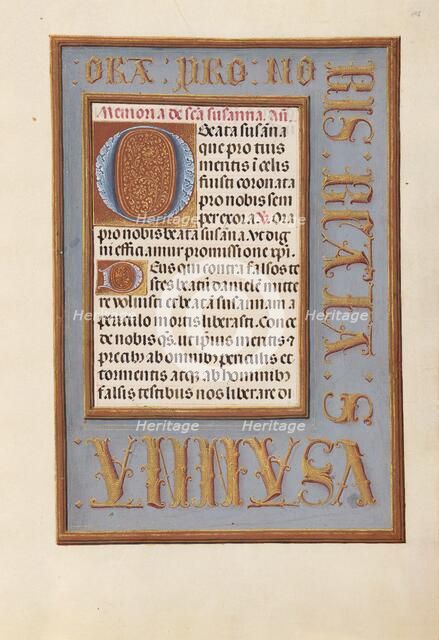 ORA : PRO : NO
BIS · BEATA · S
VSANNA
Memoria de scã susanna. Añ.
O Beata susãna
que pro tuis
meritis ĩ celis
fuisti coronata
pro nobis sem
per exora. V. Ora
pro nobis beata susãna. Vt dig
ni efficiamur promissione xpi.
Deus qui contra falsos te
stes beatũ danielẽ mitte
re voluisti et beatã susannam a
periculo mortis liberasti. Conce
de nobis qs. ut ipius meritis et
precibꝫ ab omnibꝫ periculis et
tormentis atqꝫ ab hominibꝫ
falsis testibus nos liberare di
Heritage
Heritage
Heritage
Heritage
Heritage
Heritage
Heritage
Heritage